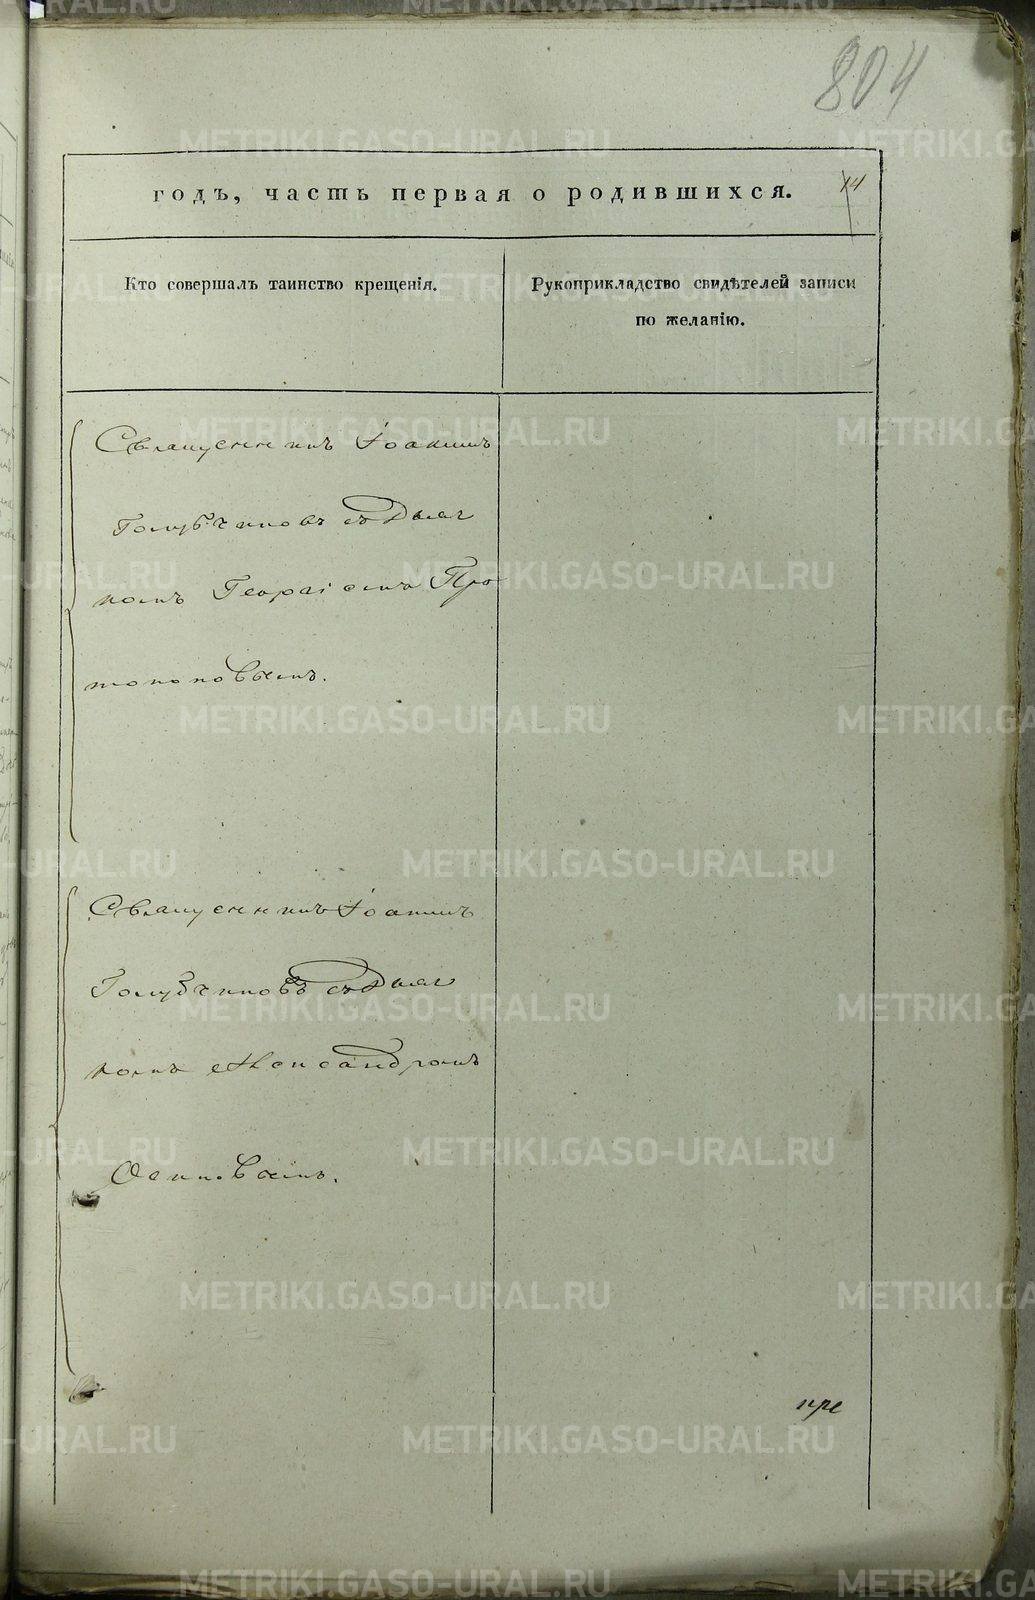 804
годъ, часть первая о родившихся.
14
Кто совершалъ таинство крещенія.
Рукоприкладство свидѣтелей записи
по желанію.
Священникъ Іоаннъ
Голубчиковъ съ Дьяч
комъ Георгіемъ Про
топоповымъ.
Священникъ Іоаннъ
Голубчиковъ съ Дьяч
комъ Александромъ
Осиповымъ.
пре
METRIKI.GASO-URAL.RU